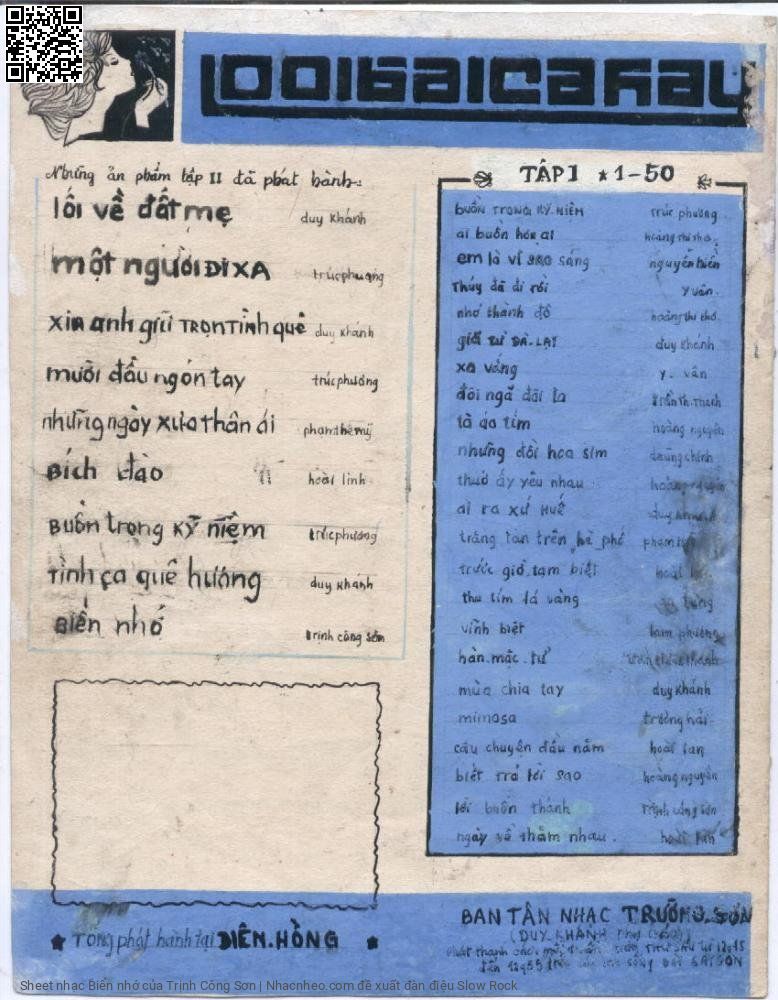 100 bài ca hay
Những ấn phẩm tập II đã phát hành:
lối về đất mẹ duy khánh
một người ĐI XA trúc phương
xin anh giữ TRỌN TÌNh quê duy khánh
mười đầu ngón tay trúc phương
những ngày xưa thân ái phạm thế mỹ
Bích đào hoài linh
Buồn trong kỷ niệm trúc phương
Tình ca quê hương duy khánh
Biển nhớ trịnh công sơn
TẬP I ★ 1-50
buồn TRONG KỶ NIỆM trúc phương
ai buồn hơn ai hoàng thi thơ
em là vì sao sáng nguyễn hiền
Thúy đã đi rồi y vân
nhớ thành đô hoàng thi thơ
giã từ ĐÀ-LẠT duy khánh
xa vắng y vân
đôi ngã đôi ta trần th. thanh
tà áo tím hoàng nguyên
những đồi hoa sim dzũng chinh
thuở ấy yêu nhau hoàng nguyên
ai ra xứ Huế duy khánh
trăng tàn trên hè phố phạm
trước giờ tạm biệt hoài
thu tím lá vàng
vĩnh biệt lam phương
hàn-mặc-tử trần thiện thanh
mùa chia tay duy khánh
mimosa trường hải
câu chuyện đầu năm hoài lan
biết trả lời sao hoàng nguyên
lời buồn thánh trịnh công sơn
ngày về thăm nhau
★ Tổng phát hành tại DIÊN-HỒNG ★
BAN TÂN NHẠC TRƯỜNG-SƠN
(DUY KHÁNH phụ trách)
SAIGON
Sheet nhạc Biển nhớ của Trịnh Công Sơn | Nhacnheo.com đề xuất đàn điệu Slow Rock